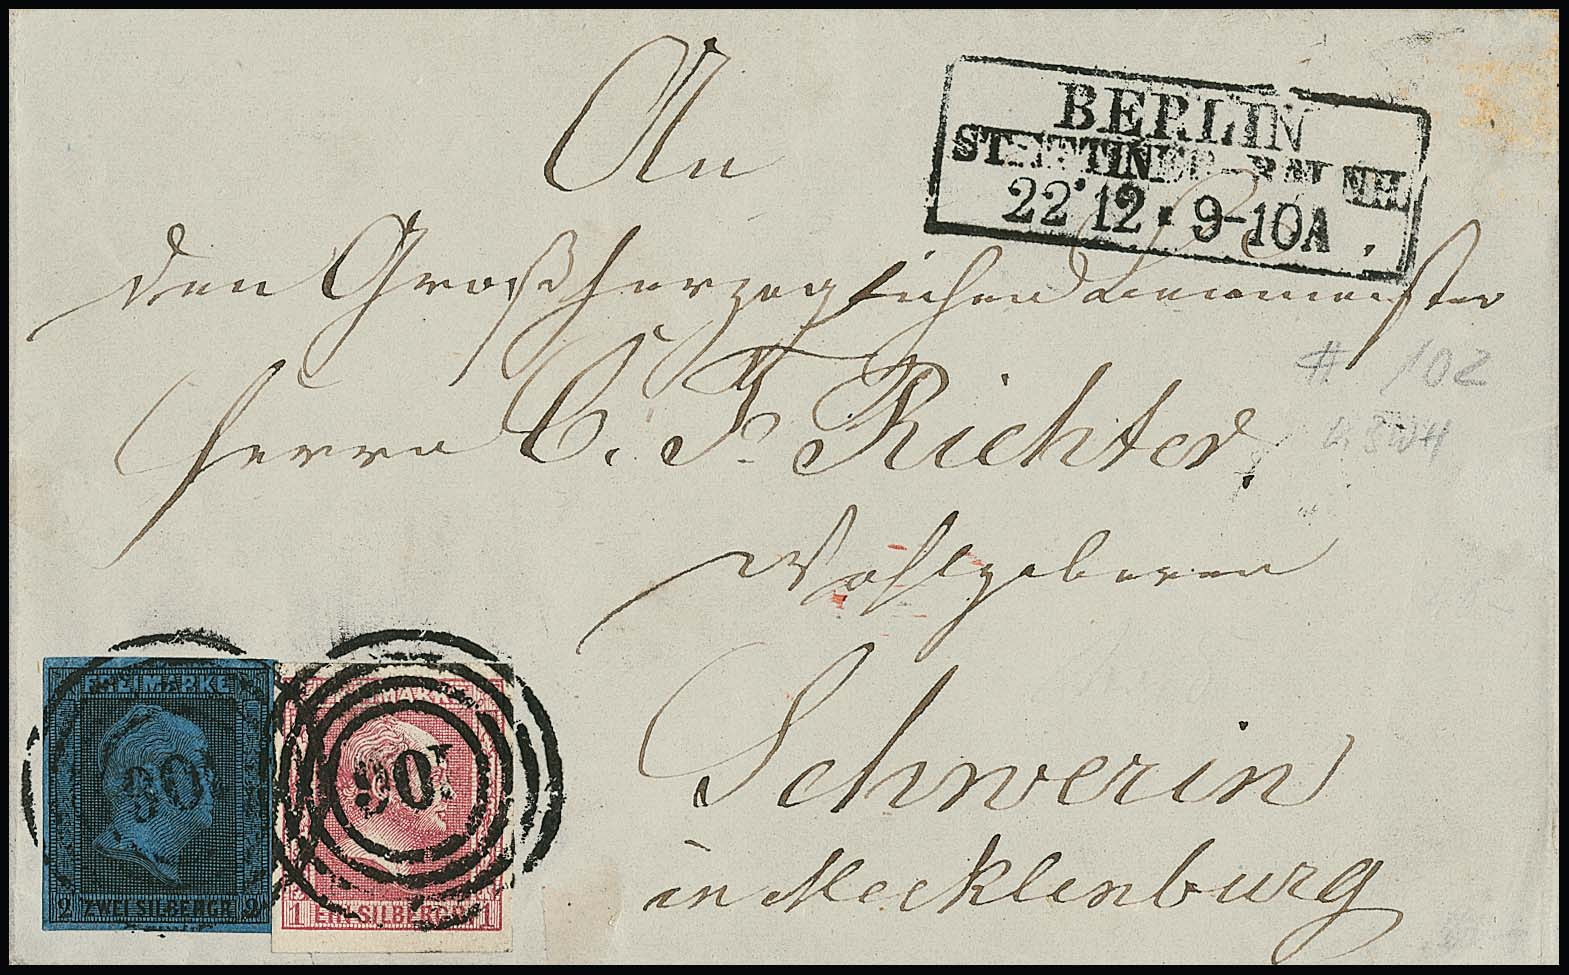 An
BERLIN
STETTINER-BAHNH.
22 12 • 9-10A
den Großherzoglichen
Herrn C. F. Richter,
Wohlgeboren
Schwerin
in Mecklenburg
# 102
FREIMARKE
2 ZWEI SILBERGR. 2
MARKE
1 EIN SILBERGR. 1